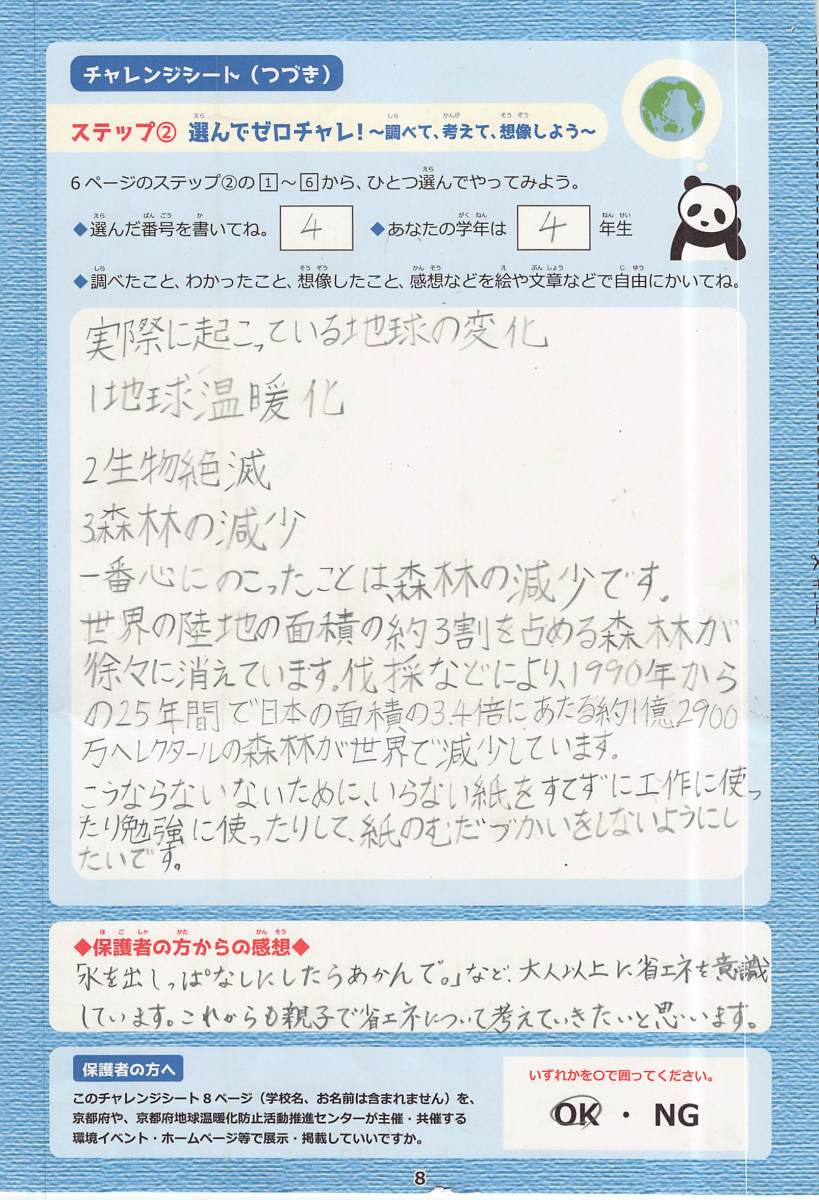 チャレンジシート（つづき）
ステップ② 選んでゼロチャレ！～調べて、考えて、想像しよう～
6ページのステップ②の1～6から、ひとつ選んでやってみよう。
◆選んだ番号を書いてね。 4 ◆あなたの学年は 4 年生
◆調べたこと、わかったこと、想像したこと、感想などを絵や文章などで自由にかいてね。
実際に起こっている地球の変化
1地球温暖化
2生物絶滅
3森林の減少
一番心にのこったことは、森林の減少です。
世界の陸地の面積の約3割を占める森林が
徐々に消えています。伐採などにより、1990年から
の25年間で日本の面積の3.4倍にあたる約1億2900
万ヘクタールの森林が世界で減少しています。
こうならないないために、いらない紙をすてずに工作に使っ
たり勉強に使ったりして、紙のむだづかいをしないようにし
たいです。
◆保護者の方からの感想◆
「水を出しっぱなしにしたらあかんで。」など、大人以上に省エネを意識
しています。これからも親子で省エネについて考えていきたいと思います。
保護者の方へ
このチャレンジシート8ページ（学校名、お名前は含まれません）を、
京都府や、京都府地球温暖化防止活動推進センターが主催・共催する
環境イベント・ホームページ等で展示・掲載していいですか。
いずれかを〇で囲ってください。
OK ・ NG
8